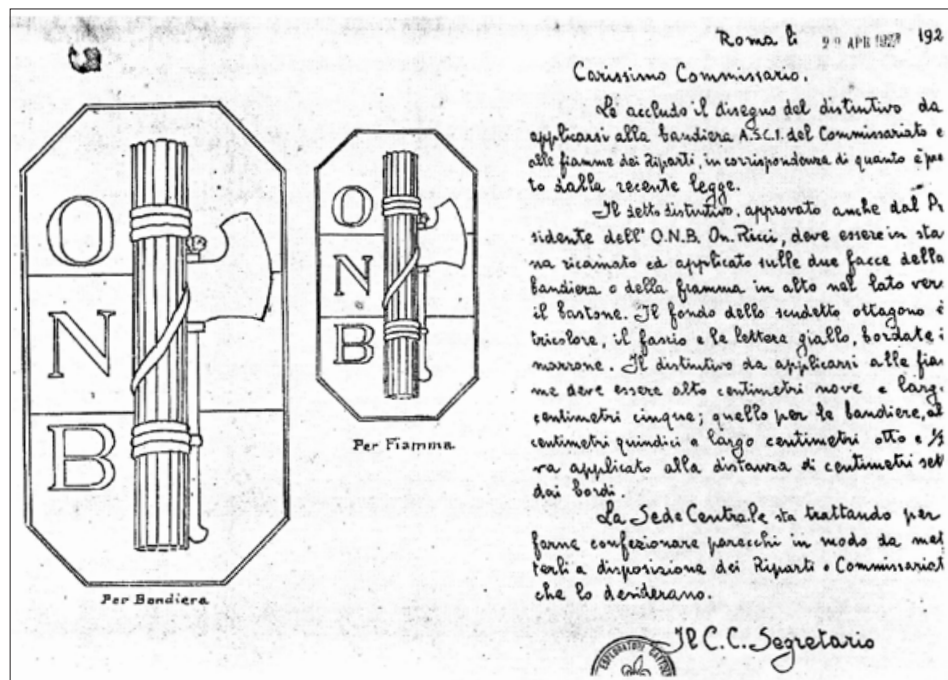 O
N
B
Per Bandiera
O
N
B
Per Fiamma
Roma li 20 APR 1927 192
Carissimo Commissario.
Le accludo il disegno del distintivo da
applicarsi alla bandiera A.S.C.I. del Commissariato e
alle fiamme dei Riparti, in corrispondenza di quanto è
to dalla recente legge.
Il detto distintivo, approvato anche dal
sidente dell' O.N.B. On. Ricci, deve essere in sta
na ricamato ed applicato sulle due facce della
bandiera o della fiamma in alto nel lato vers
il bastone. Il fondo dello scudetto ottagono è
tricolore, il fascio e le lettere giallo, bordate
marrone. Il distintivo da applicarsi alle fiam
me deve essere alto centimetri nove e larg
centimetri cinque; quello per le bandiere, al
centimetri quindici e largo centimetri otto e ½
va applicato alla distanza di centimetri set
dai bordi
La Sede Centrale sta trattando per
farne confezionare parecchi in modo da met
terli a disposizione dei Riparti o Commissariat
che lo desiderano.
Il C.C. Segretario